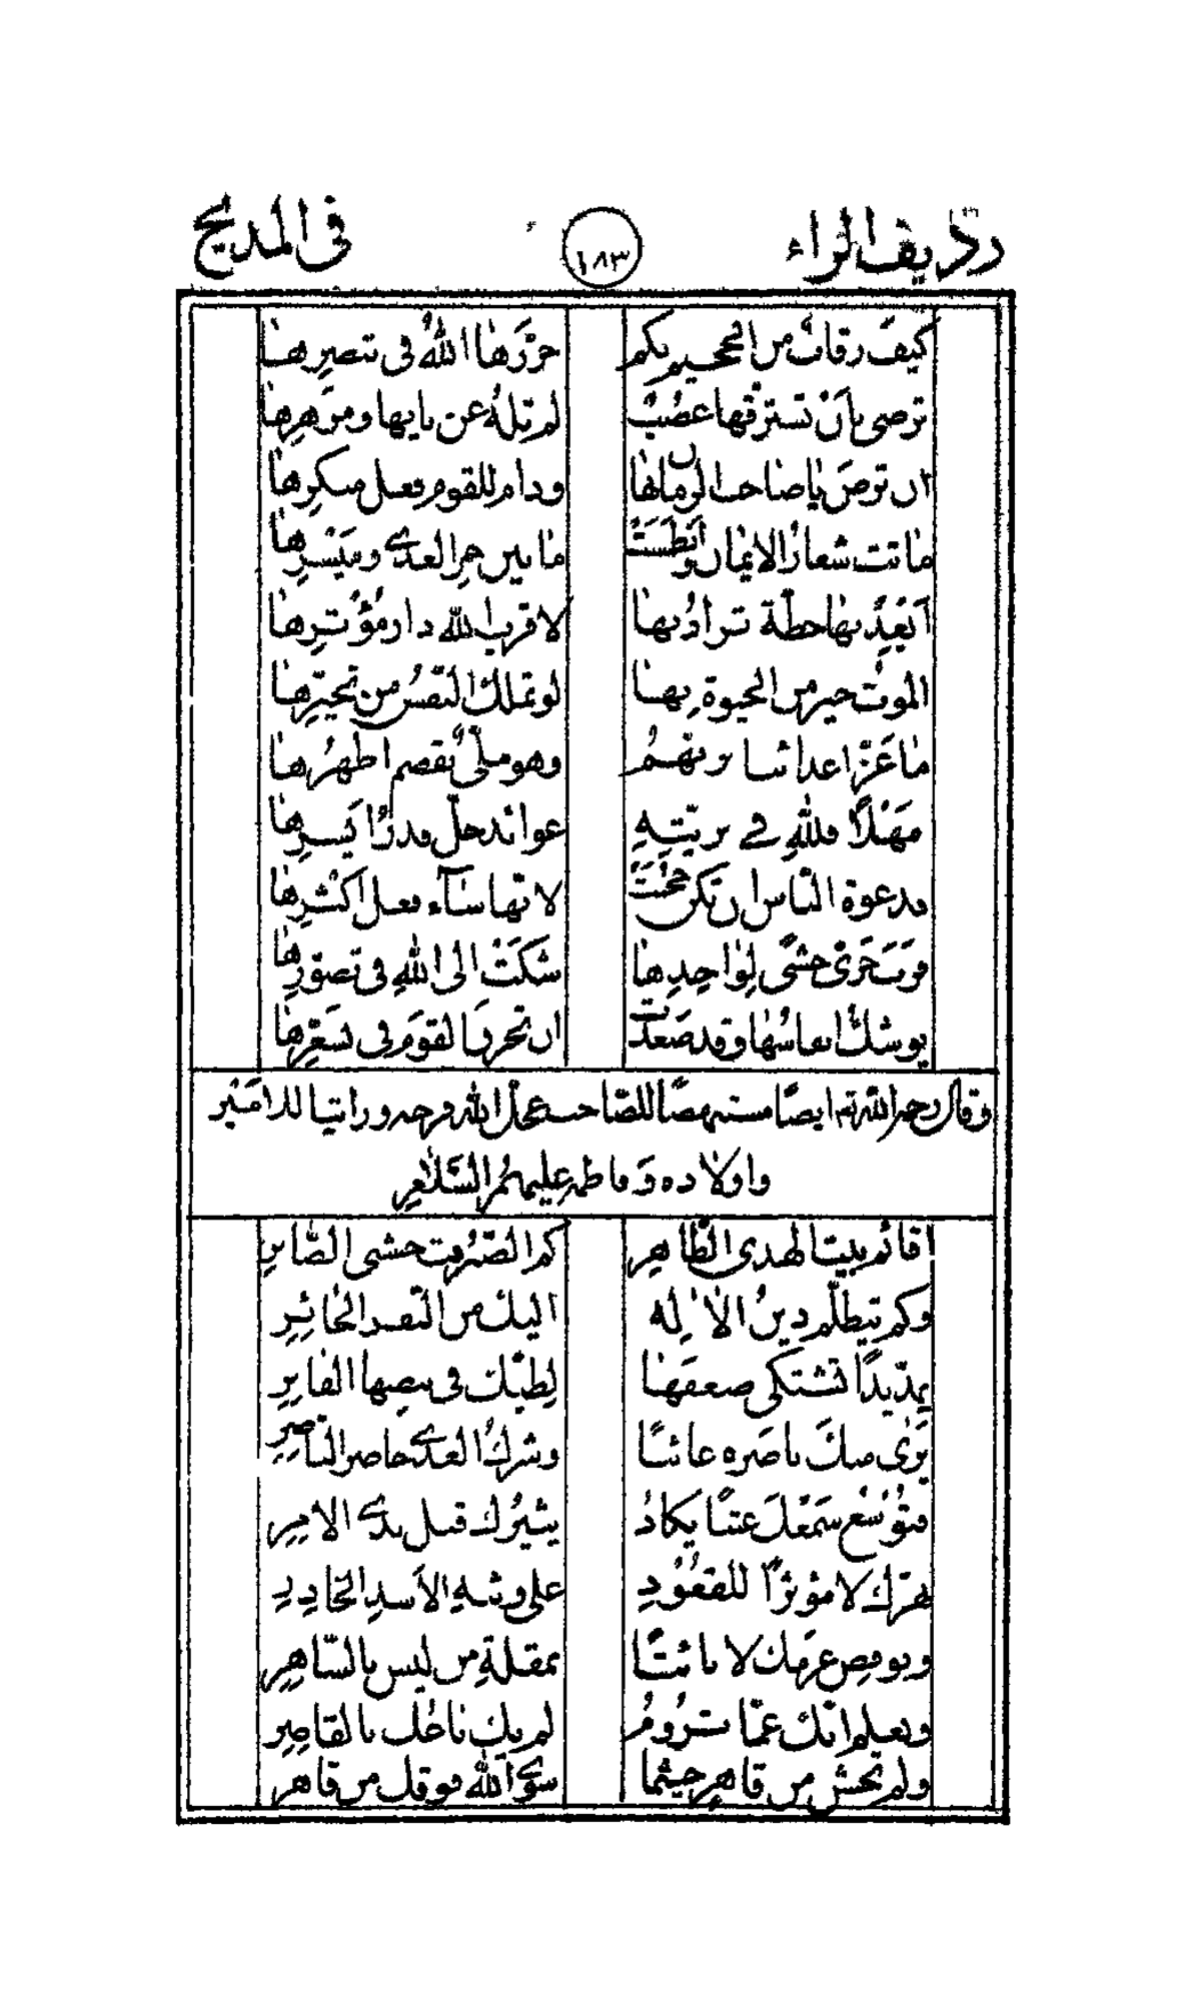 رديف الراء ١٨٣ في المديح
كيفَ رقابٌ من الجحيم بكم حرّرها اللهُ في تبصرها
ترضى بأن تسترقّها عصبٌ لم تله عن نايها ومزهرها
ان ترضَ يا صاحب الزمان بها ودام للقوم فعل منكرها
ماتت شعارُ الايمان ما بين خمر العدى وميسرها
أبعِد بها خطّة تراد بها لا قرب الله دار مؤثرها
الموتُ خير من الحيوة بها لو تملك النفسُ من تخيّرها
ما غرّ اعدائنا بربّهم وهو مليٌّ بقصم اظهرها
مَهلاً فلله في بريّته عوائد جلّ قدرُ ايسرها
فدعوة النّاس ان تكن حُجبت لانّها ساء فعل اكثرها
فربّ حرّى حشىً لواحدها شكت الى الله في تصوّرها
يوشك انفاسُها وقد صعدت ان تحرق القوم في تسعّرها
وقال رحمه الله ايضًا مستنهضًا للصّاحب عجّل الله فرجه وراثيا للامير
واولاده وفاطمة عليهم السّلام
اقائم بيت الهدى الطّاهر كم الصّبرُ فتّ حشى الصّابرِ
وكم يتظلّم دينُ الاله اليك من النّفر الجائرِ
يمدّ يدًا تشتكي ضعفها لطبّك في نبضها الفاترِ
يَرى منك ناصره غائبًا وشرك العدى حاضر النّاصرِ
فنوسع سمعك عتبًا يكادُ يثيرك قبل ندى الآمرِ
نهزّك لا مؤثرًا للقعود على وثبة الأسد الخادرِ
ونوقظ عزمك لا بائتًا بمقلة من ليس بالسّاهرِ
ونعلم انّك عمّا تروم لم يك باعُك بالقاصرِ
ولم تخش من قاهر حيثما سوى الله فوقك من قاهرِ